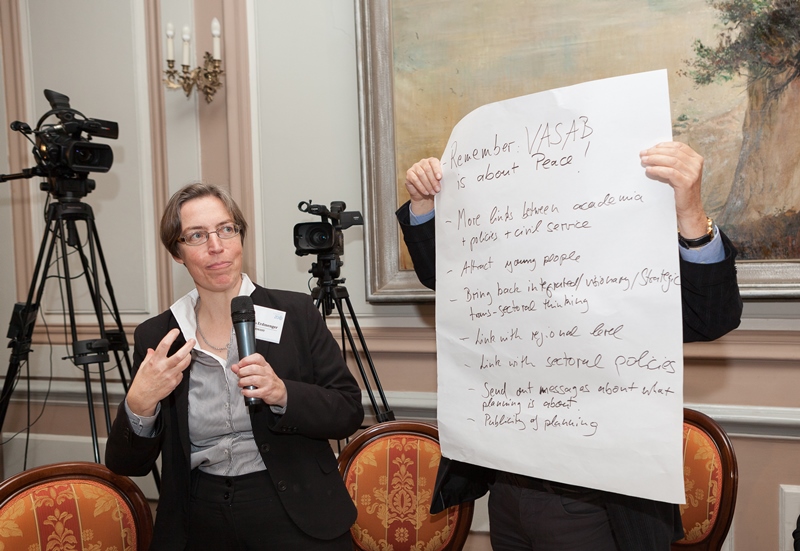 - Remember: VASAB
is about Peace!
- More links between academia
+ policies + civil service
- Attract young people
- Bring back integrated/visionary/strategic
trans-sectoral thinking
- Link with regional level
- Link with sectoral policies
- Send out messages about what
planning is about
- Publicity of planning